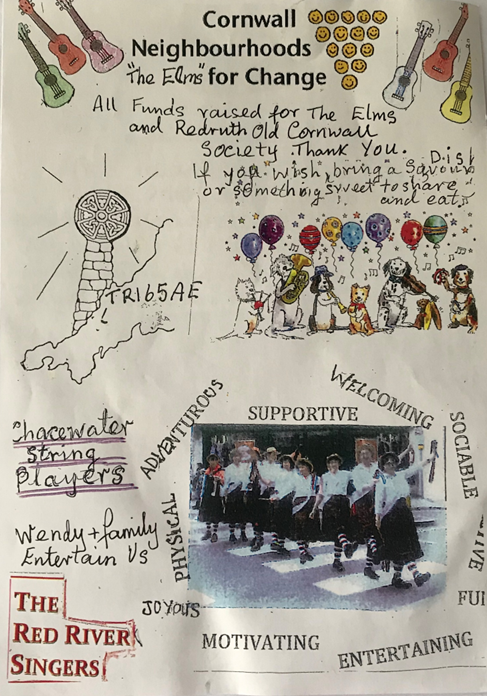 Cornwall
Neighbourhoods
"The Elms" for Change
All Funds raised for The Elms
and Redruth Old Cornwall
Society Thank You.
If you wish, bring a Savoury Dish
or something sweet to share
and eat.
TR165AE
Chacewater
String
Players
Wendy + family
Entertain Us
THE
RED RIVER
SINGERS
ADVENTUROUS
SUPPORTIVE
WELCOMING
SOCIABLE
PHYSICAL
JOYOUS
MOTIVATING
ENTERTAINING